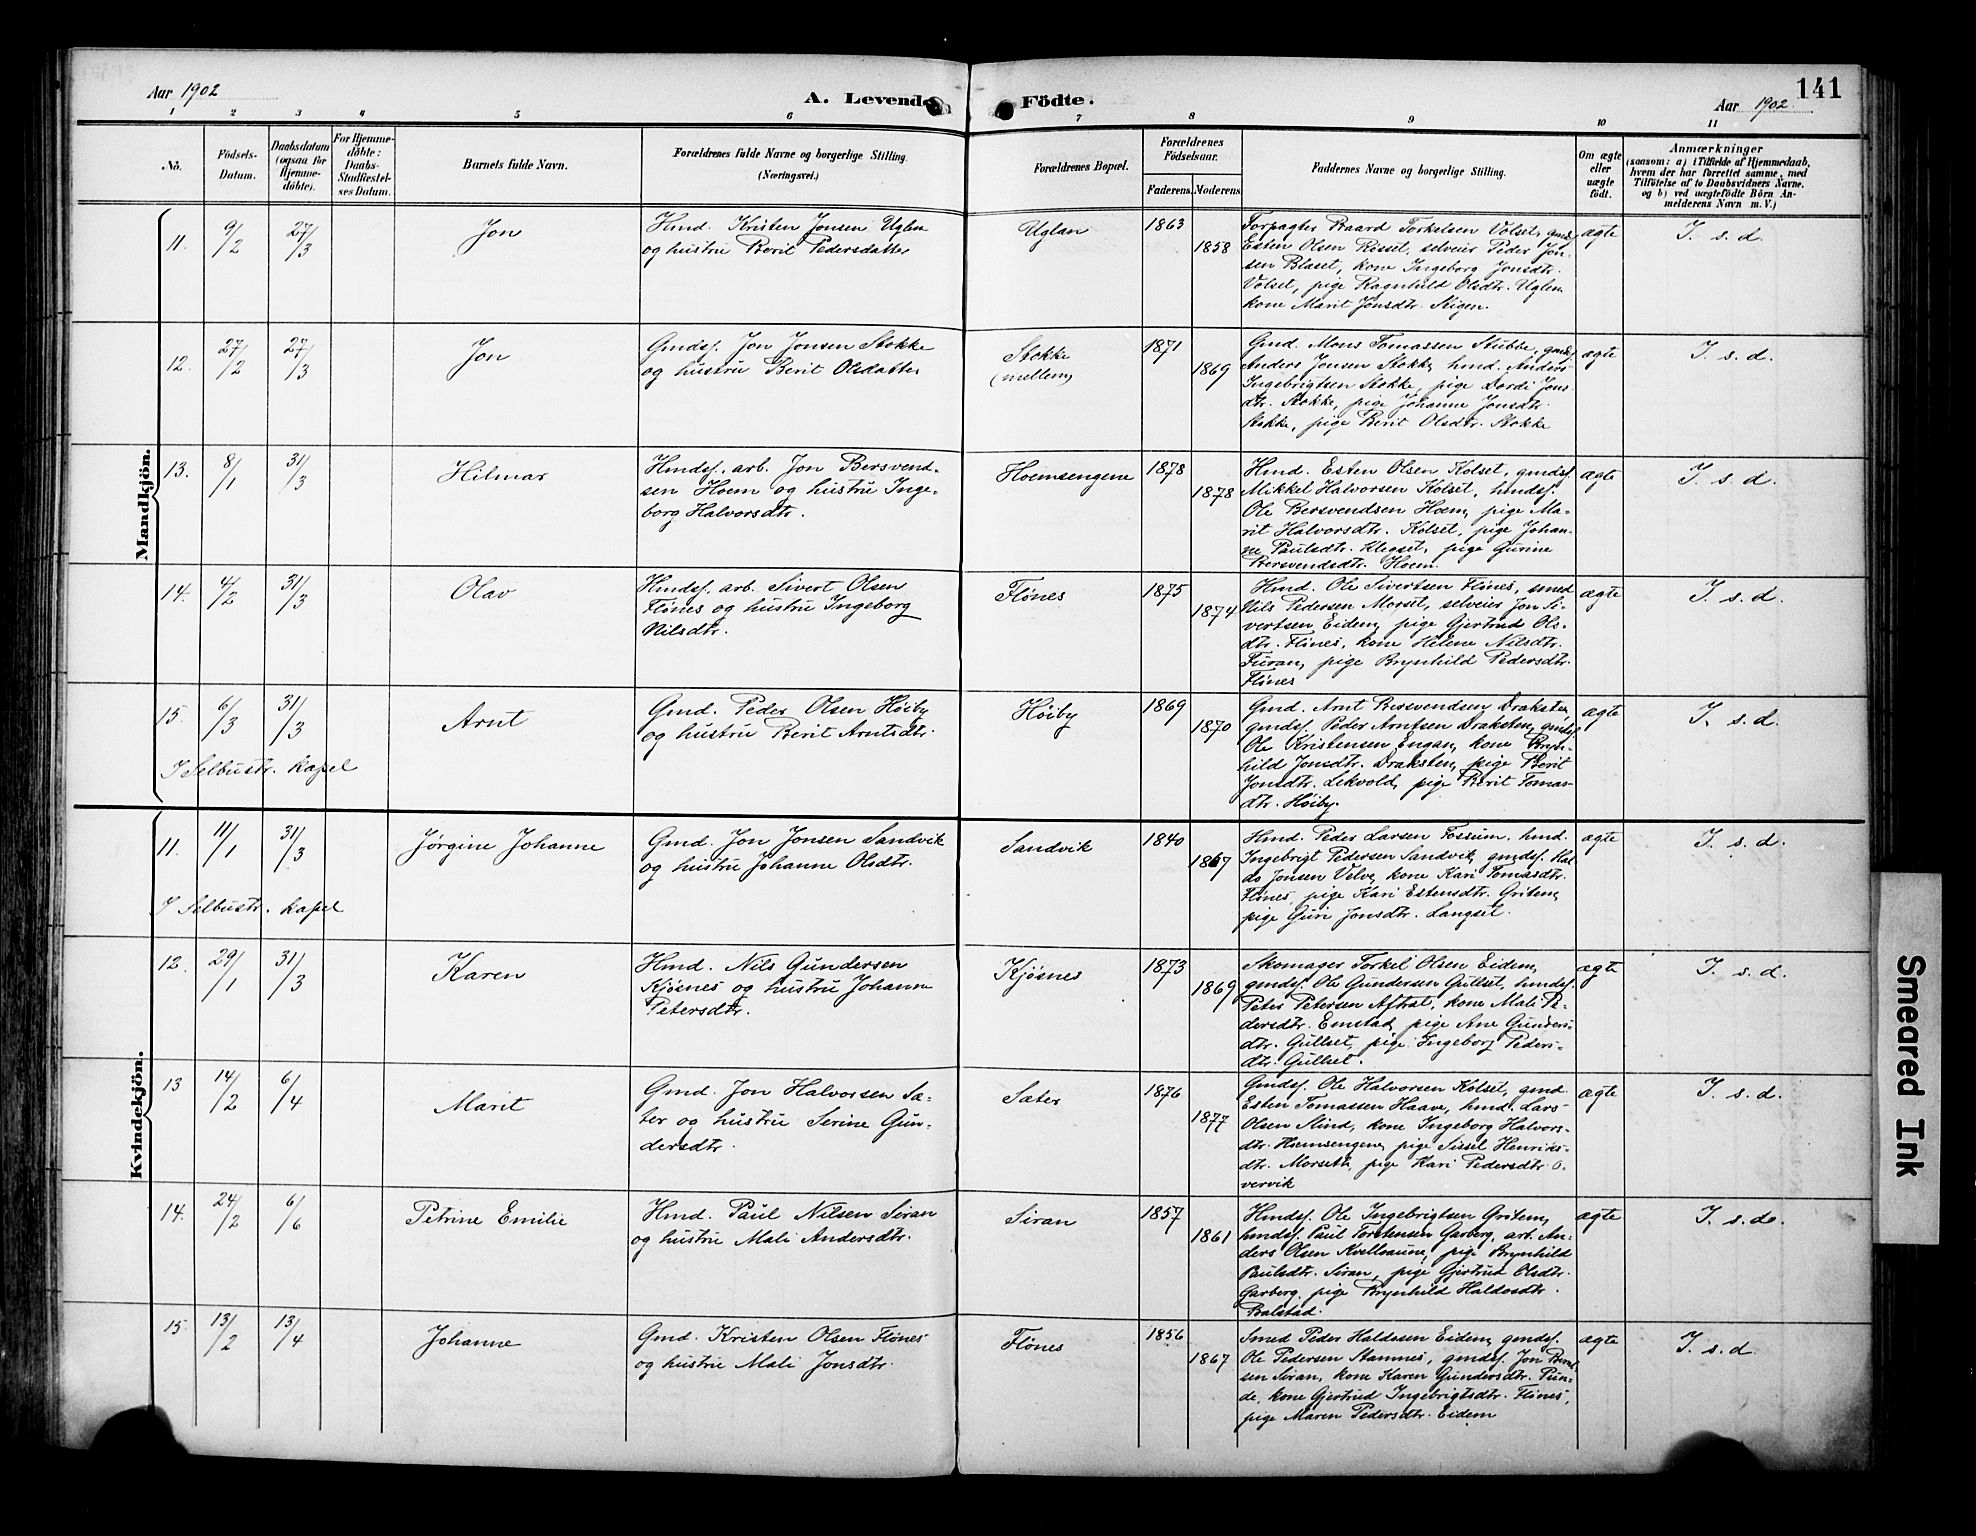 Aar 1902
A. Levende Födte.
141
Aar 1902.
1 2 3 4 5 6 7 8 9 10 11
No.
Födsels-
Datum.
Daabsdatum
(ogsaa for
Hjemme-
döbte).
For Hjemme-
döbte:
Daabs-
Stadfæstel-
ses Datum.
Barnets fulde Navn.
Forældrenes fulde Navne og borgerlige Stilling.
(Næringsvei.)
Forældrenes Bopæl.
Forældrenes
Födselsaar.
Faderens. Moderens.
Faddernes Navne og borgerlige Stilling.
Om ægte
eller
uægte
födt.
Anmærkninger
(saasom: a) i Tilfælde af Hjemmedaab,
hvem der har forrettet samme, med
Tilföielse af to Daabsvidners Navne.
og b) ved uægtefödte Börn An-
melderens Navn m. V.)
Mandkjön.
11. 9/2 27/3 Jon
Hmd. Kristen Jonsen Uglen
og hustru Berit Pedersdatter
Uglan
1863
1858
Forpagter Baard Torkelsen Volset, gmdsf.
Esten Olsen Rösset, selveier Peder Jon-
sen Blaset, kone Ingeborg Jonsdtr.
Volset, pige Ragnhild Olsdtr. Uglen
kone Marit Jonsdtr. Stigen.
ægte
I. s. d.
12. 27/2 27/3 Jon
Gmdsf. Jon Jonsen Stokke
og hustru Berit Olsdatter
Stokke
(mellem)
1871
1869
Gmd. Mons Tomassen Stubbe, gmdsf.
Anders Jonsen Stokke, hmd. Anders
Ingebrigtsen Stokke, pige Dordi Jons-
dtr. Stokke, pige Johanna Jonsdtr.
Stokke, pige Berit Olsdtr. Stokke
ægte
I. s. d.
13. 8/1 31/3 Hilmar
Hmdsf. arb. Jon Bersvend-
sen Hoem og hustru Inge-
borg Halvorsdtr.
Hoemsengene
1878
1878
Hmd. Esten Olsen Kolset, gmdsf.
Mikkel Halvorsen Kolset, hmdsf.
Ole Bersvendsen Hoem, pige Ma-
rit Halvorsdtr. Kolset, pige Johan-
ne Paulsdtr. Klegset, pige Gurine
Bersvendsdtr. Hoem.
ægte
I. s. d.
14. 4/2 31/3 Olav
Hmdsf. arb. Sivert Olsen
Flönes og hustru Ingeborg
Nilsdtr.
Flönes
1875
1874
Hmd. Ole Sivertsen Flönes, smed
Nils Pedersen Morset, selveier Jon Si-
vertsen Eidem, pige Gjertrud Ols-
dtr. Flönes, kone Helene Nilsdtr.
Furan, pige Brynhild Pedersdtr.
Flönes
ægte
I. s. d.
15. 6/3 31/3 Arnt
I Selbustr. kapel
Gmd. Peder Olsen Höiby
og hustru Berit Arntsdtr.
Höiby
1869
1870
Gmd. Arnt Bersvendsen Draksten,
gmdsf. Peder Arntsen Draksten, gmdsf.
Ole Kristensen Engan, kone Bryn-
hild Jonsdtr. Draksten, pige Berit
Jonsdtr. Lekvold, pige Berit Tomas-
dtr. Höiby.
ægte
I. s. d.
Kvindekjön.
11. 11/1 31/3 Jørgine Johanne
I Selbustr. kapel
Gmd. Jon Jonsen Sandvik
og hustru Johanne Olsdtr.
Sandvik
1840
1867
Hmd. Peder Larsen Fossum, hmd.
Ingebrigt Pedersen Sandvik, gmdsf. Hal-
do Jonsen Velve, kone Kari Tomasdtr.
Flönes, pige Kari Estensdtr. Gröten,
pige Guri Jonsdtr. Langset.
ægte
I. s. d.
12. 29/1 31/3 Karen
Hmd. Nils Gundersen
Kjösnes og hustru Johanna
Petersdtr.
Kjösnes
1873
1869
Skomager Torkel Olsen Eidem,
gmdsf. Ole Gundersen Gullset, hmdsf.
Peter Petersen Aftret, kone Mali Pe-
dersdtr. Emstad, pige Ane Gunders-
dtr. Gullset, pige Ingeborg Peders-
dtr. Gullset.
ægte
I. s. d.
13 14/2 6/4 Marit
Gmd. Jon Halvorsen Sæ-
ter og hustru Serine Gun-
dersdtr.
Sæter
1876
1877
Gmdsf. Ole Halvorsen Kolset, gmd.
Esten Tomassen Haave, hmd. Lars
Olsen Slind, kone Ingeborg Halvors-
dtr. Hoemsengene, pige Sissel Henriks-
dtr. Morseth, pige Kari Pedersdtr. O-
vervik
ægte
I. s. d.
14. 24/2 6/6 Petrine Emilie
Hmd. Paul Nilsen Siran
og hustru Mali Andersdtr.
Siran
1857
1861
Hmdsf. Ole Ingebrigtsen Gröten,
hmdsf. Paul Torstensen Garberg, arb. An-
ders Olsen Kvellaune, pige Brynhild
Paulsdtr. Siran, pige Gjertrud Olsdtr.
Garberg, pige Brynhild Haldosdtr.
Balstad.
ægte
I. s. d.
15. 13/2 13/4 Johanne
Gmd. Kristen Olsen Flönes
og hustru Mali Jonsdtr.
Flönes
1856
1867
Smed Peder Haldosen Eidem, gmdsf.
Ole Pedersen Stamnes, gmdsf. Jon
sen Siran, kone Karen Gundersdtr.
de, kone Gjertrud Ingebrigtsdtr. Flönes,
pige Maren Pedersdtr. Eidem
ægte
I. s. d.
Smeared Ink